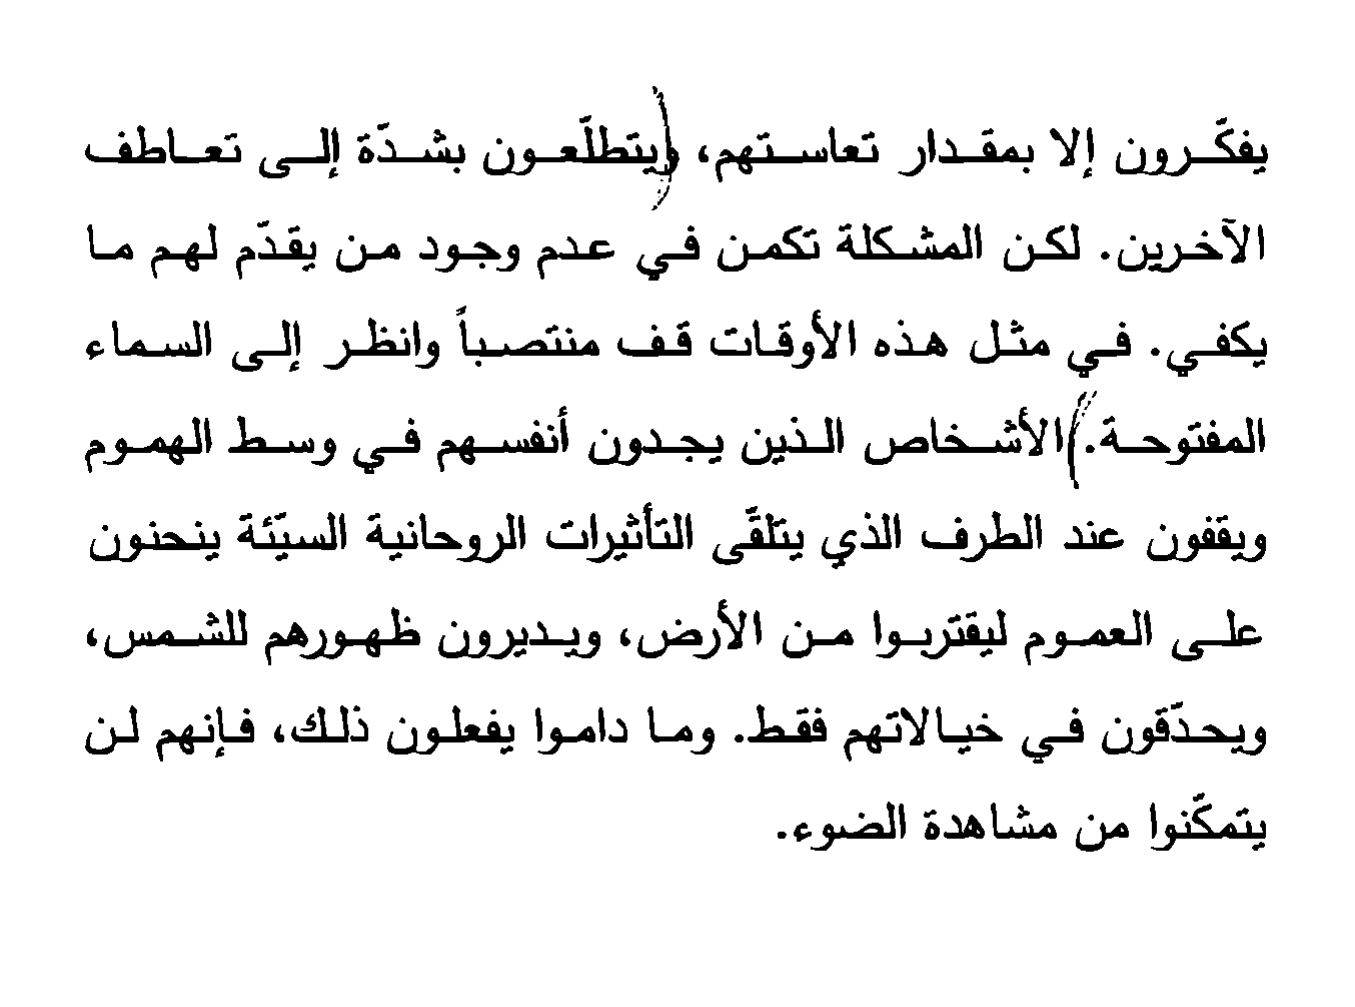 يفكّرون إلا بمقدار تعاستهم، ويتطلّعون بشدّة إلى تعاطف
الآخرين. لكن المشكلة تكمن في عدم وجود من يقدّم لهم ما
يكفي. في مثل هذه الأوقات قف منتصباً وانظر إلى السماء
المفتوحة. الأشخاص الذين يجدون أنفسهم في وسط الهموم
ويقفون عند الطرف الذي يتلقّى التأثيرات الروحانية السيّئة ينحنون
على العموم ليقتربوا من الأرض، ويديرون ظهورهم للشمس،
ويحدّقون في خيالاتهم فقط. وما داموا يفعلون ذلك، فإنهم لن
يتمكّنوا من مشاهدة الضوء.